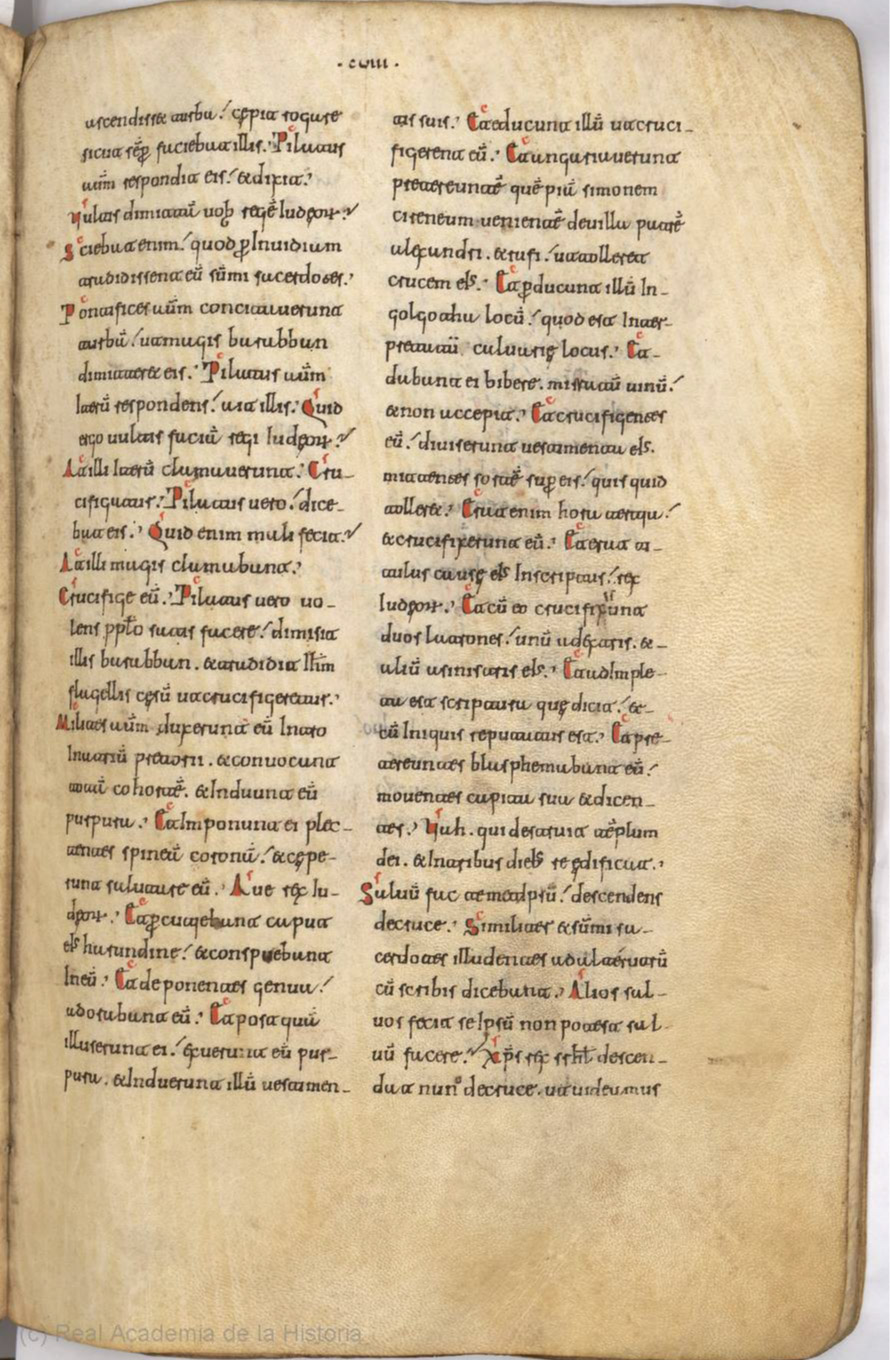 · cviii ·
ascendisset turba! cępit rogare
sicut sēp faciebat illis. Pilatus
aūm respondit eis! et dixit.
Vultis dimittā uob regē Iudęoꝝ?
Sciebat enim! quod ꝑ Inuidiam
tradidissent eū sūmi sacerdotes.
Pontifices aūm concitauerunt
turbā! ut magis barabban
dimitteret eis. Pilatus aūm
Iterū respondens! ait illis. Quid
ergo uultis faciā regi Iudęoꝝ?
At illi Iterū clamauerunt. Cru-
cifigatur. Pilatus uero! dice-
bat eis. Quid enim mali fecit?
At illi magis clamabant.
Crucifige eū. Pilatus uero uo-
lens pplō satis facere! dimisit
illis barabban. et tradidit Ihm̄
flagellis cęsū ut crucifigeretur.
Milites aūm duxerunt eū Intro
In atriū pretorii. et conuocant
totā cohortē. et Induunt eū
purpura. Et Imponunt ei plec-
tentes spineā coronā! et cępe-
runt salutare eū. Aue rex Iu-
dęoꝝ. Et ꝑcutiebant caput
eīs harundine! et conspuebant
In eū. Et deponentes genua!
adorabant eū. Et postquā
illuserunt ei! exuerunt eū pur-
pura. et Induerunt illū uestimen-
tis suis. Et educunt illū ut cruci-
figerent eū. Et angariauerunt
pretereuntē quēpiā simonem
cireneum uenientē de uilla patrē
alexandri. et rufi! ut tolleret
crucem eīs. Et ꝑducunt illū In
golgotha locū! quod est Inter-
pretatū caluarię locus. Et
dabunt ei bibere. mirratū uinū!
et non accepit. Et crucifigentes
eū! diuiserunt uestimenta eīs.
mittentes sortē suꝑ eis! quis quid
tolleret. Erat enim hora tertia!
et crucifixerunt eū. Et erat ti-
tulus causę eīs Inscriptus! rex
Iudęoꝝ. Et cū eo crucifixerunt
duos latrones! unū ad extris. et
aliū a sinistris eīs. Et ad Imple-
ta est scriptura quę dicit! et
cū Iniquis reputatus est. Et pre-
tereuntes blasphemabant eū!
mouentes capita sua et dicen-
tes. Vah. qui destruit tēplum
dei. et In tribus dieb reędificat.
Saluū fac temetipsū! descendens
de cruce. Similiter et sūmi sa-
cerdotes illudentes ad alterutrū
cū scribis dicebant. Alios sal-
uos fecit se Ipsū non potest sal-
uū facere. Xp̄s rex isrhl̄ descen-
dat nunc de cruce. ut uideamus
(c) Real Academia de la Historia